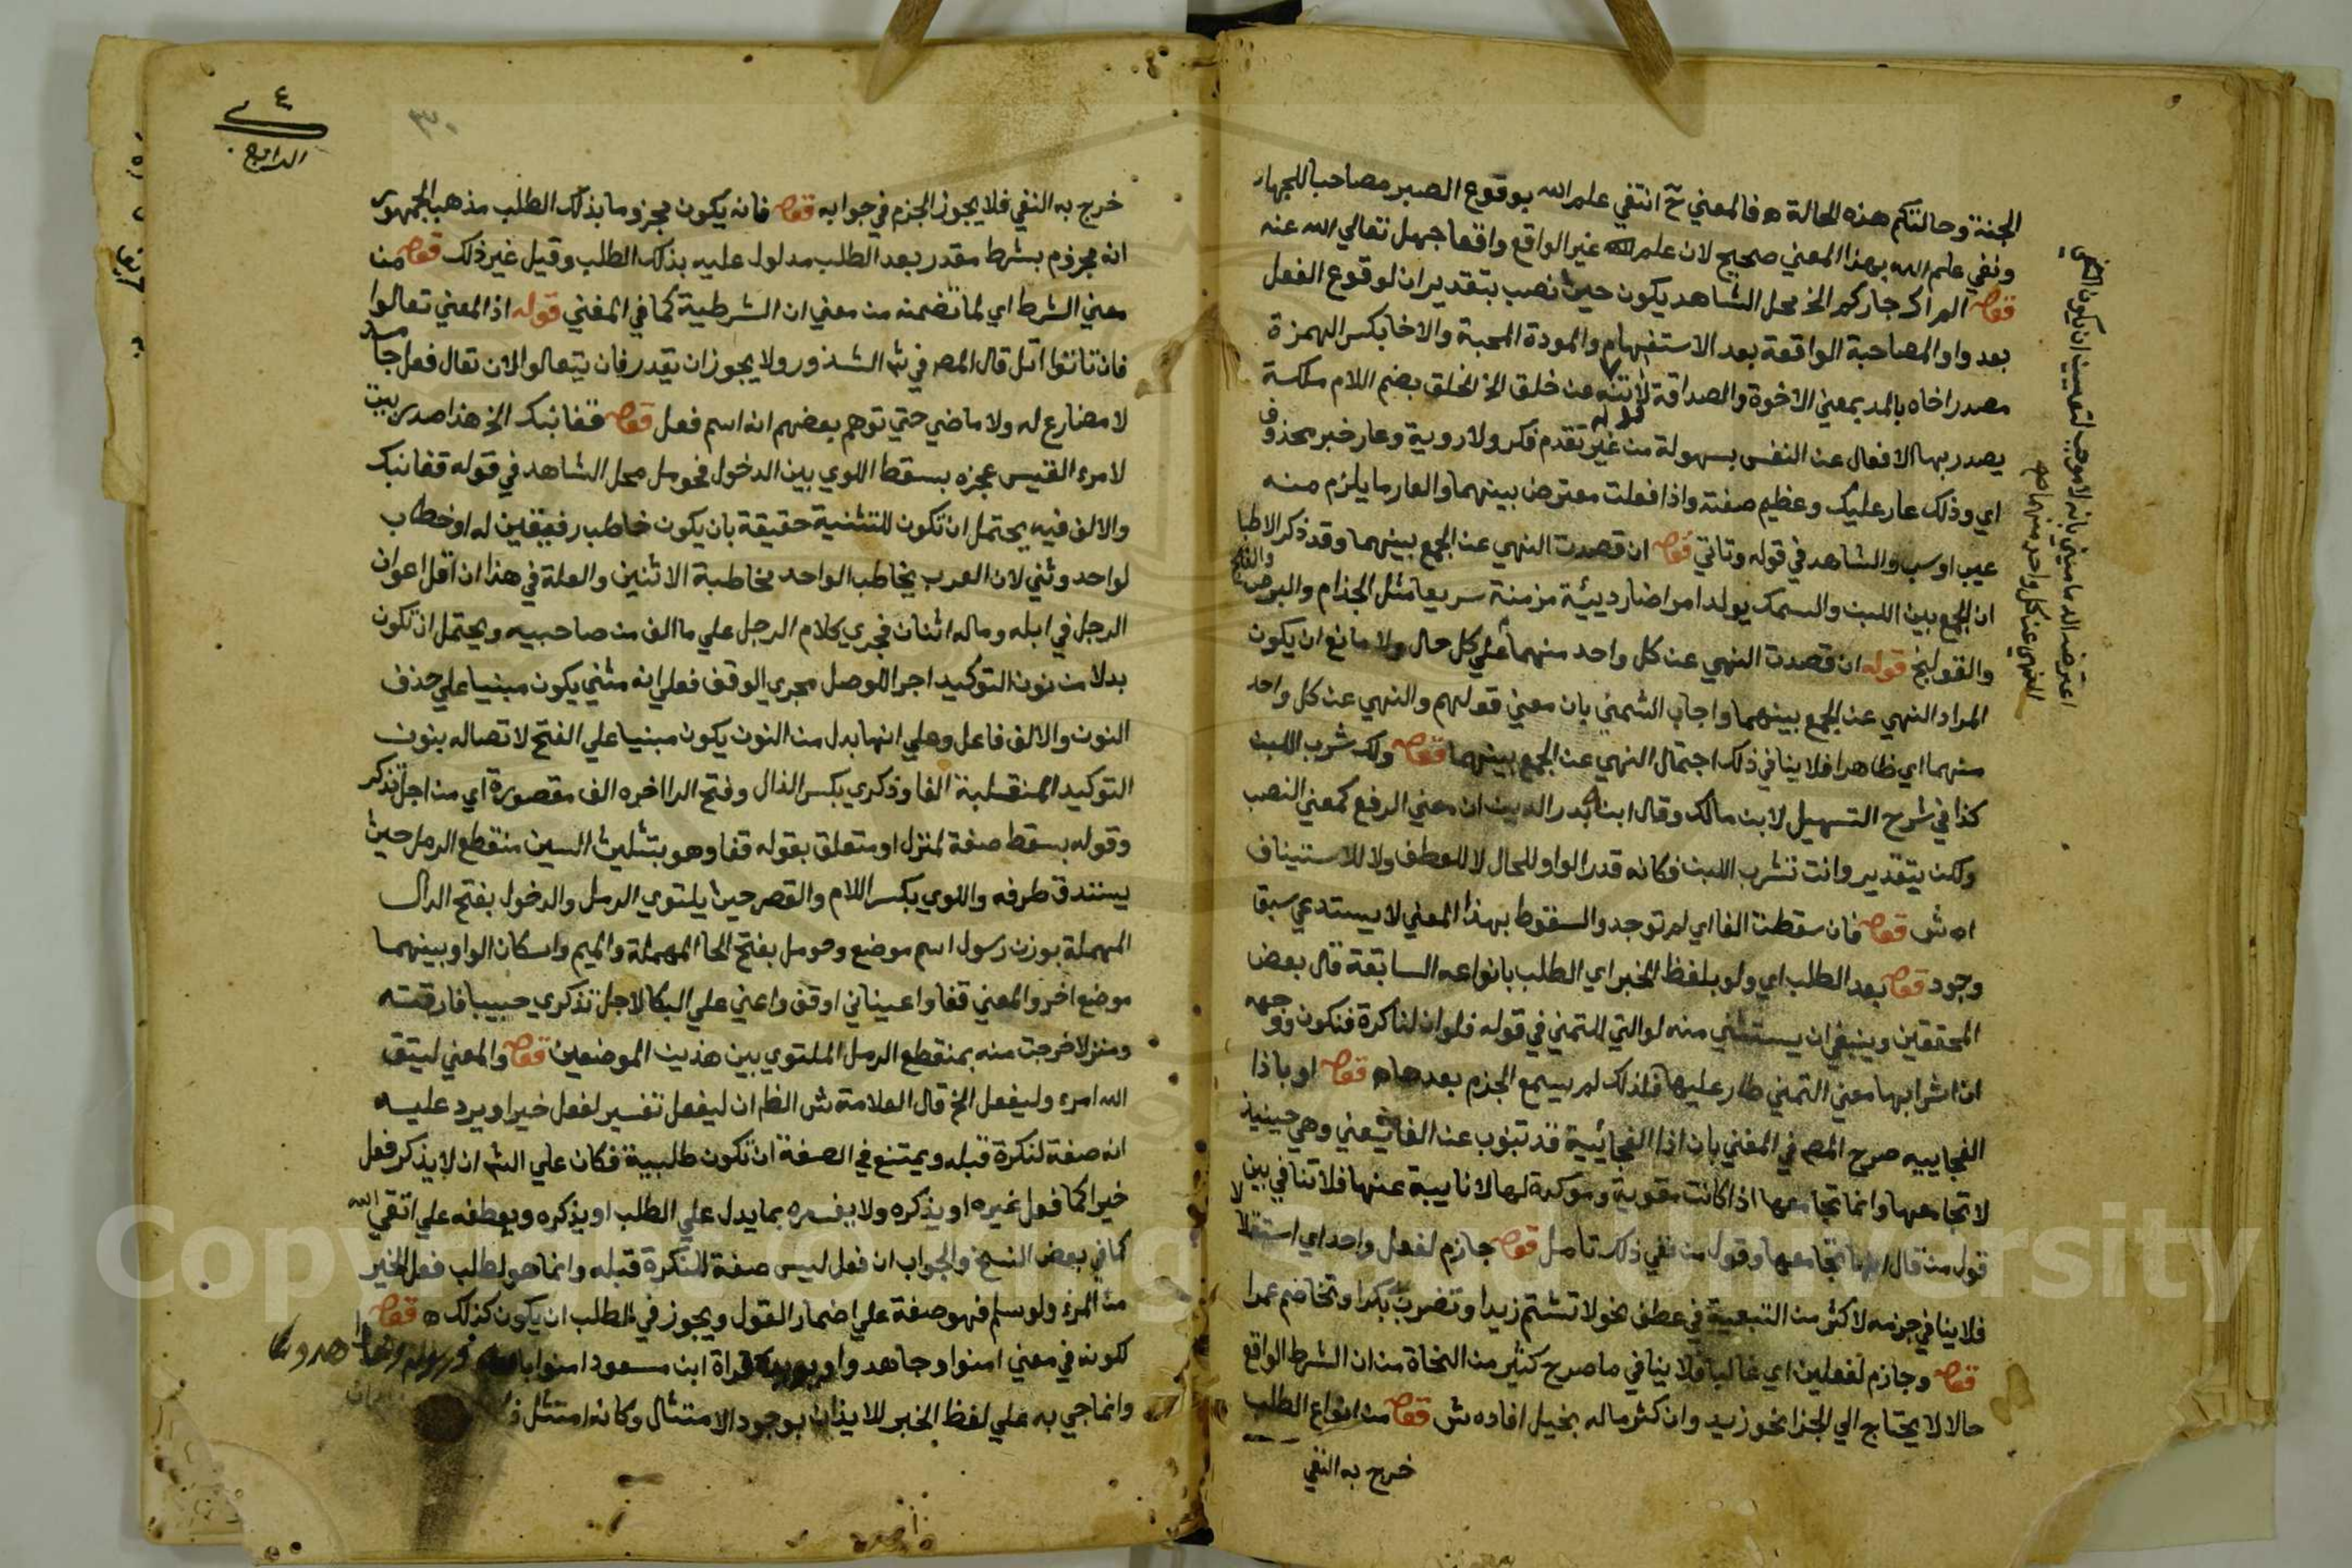 الجنة وحالتكم هذه الحالة ه فالمعني ح انتفي علم الله بوقوع الصبر مصاحبا للجهاد
ونفي علم الله بهذا المعني صحيح لان علم الله غير الواقع واقعا جهل تعالي الله عنه
قوله الم اك جاركم الخ محل الشاهد يكون حيث نصب بتقدير ان لوقوع الفعل
بعد واو المصاحبة الواقعة بعد الاستفهام والمودة المحبة والاخا بكسر الهمزة
مصدر اخاه بالمد بمعني الاخوة والصداقة
قوله
لا تنه عن خلق الخ الخلق بضم اللام ملكة
يصدر بها الافعال عن النفس بسهولة من غير تقدم فكر ولا روية وعار خبر محذوف
اي وذلك عار عليك وعظيم صفته واذا فعلت معترض بينهما والعار ما يلزم منه
عيب او سب والشاهد في قوله وتاتي قوله ان قصدت النهي عن الجمع بينهما وقد ذكر الاطبا
ان الجمع بين اللبن والسمك يولد امراضا رديئة مزمنة سريعا مثل الجذام والبرص والفالج
والقولنج قوله ان قصدت النهي عن كل واحد منهما علي كل حال ولا مانع ان يكون
المراد النهي عن الجمع بينهما واجاب الشمني بان معني قولهم والنهي عن كل واحد
منهما اي ظاهرا فلا ينافي ذلك احتمال النهي عن الجمع بينهما قوله ولك شرب اللبن
كذا في شرح التسهيل لابن مالك وقال ابنه بدر الدين ان معني الرفع كمعني النصب
ولكن بتقدير وانت تشرب اللبن فكانه قدر الواو للحال لا للعطف ولا للاستيناف
اه ش قوله فان سقطت الفا اي لم توجد والسقوط بهذا المعني لا يستدعي سبق
وجود قوله بعد الطلب اي ولو بلفظ الخبر اي الطلب بانواعه السابقة قال بعض
المحققين وينبغي ان يستثني منه لو التي للتمني في قوله فلو ان لنا كرة فنكون ووجهه
ان اشرابها معني التمني طار عليها فلذلك لم يسمع الجزم بعدها ه قوله او باذا
الفجاييه صرح المص في المغني بان اذا الفجائية قد تنوب عن الفا يعني وهي حينيذ
لا تجامعها وانما تجامعها اذا كانت مقوية وموكدة لها لا نايبة عنها فلا تنافي بين
قول من قال انها تجامعها وقول من نفي ذلك تامل قوله جازم لفعل واحد اي استقلالا
فلا ينافي جزمه لاكثر من التبعية في عطف نحو لا تشتم زيدا وتضرب بكرا وتخاصم عمرا
قوله وجازم لفعلين اي غالبا فلا ينافي ما صرح كثير من النحاة من ان الشرط الواقع
حالا لا يحتاج الي الجزا نحو زيد وان كثر ماله بخيل افاده ش قوله من انواع الطلب
خرج به النفي
اعترضه الدماميني بانه لا موجب لتعيين ان يكون
النهي عن كل واحد منهما
٤
الرابع
٣٠
خرج به النفي فلا يجوز الجزم في جوابه قوله فانه يكون مجزوما بذلك الطلب مذهب الجمهور
انه مجزوم بشرط مقدر بعد الطلب مدلول عليه بذلك الطلب وقيل غير ذلك قوله من
معني الشرط اي لما تضمنه من معني ان الشرطية كما في المغني قوله اذ المعني تعالوا
فان تاتوا اتل قال المص في شرح الشذور ولا يجوز ان يقدر فان تتعالوا لان تعال فعل جامد
لا مضارع له ولا ماضي حتي توهم بعضهم انه اسم فعل قوله قفا نبك الخ هذا صدر بيت
لامرء القيس عجزه بسقط اللوي بين الدخول فحومل محل الشاهد في قوله قفا نبك
والالف فيه يحتمل ان تكون للتثنية حقيقة بان يكون خاطب رفيقين له او خطاب
لواحد وثني لان العرب يخاطب الواحد مخاطبة الاثنين والعلة في هذا ان اقل اعوان
الرجل في ابله وماله اثنان فجري كلام الرجل علي ما الف من صاحبيه ويحتمل ان تكون
بدلا من نون التوكيد اجرا للوصل مجري الوقف فعلي انه مثني يكون مبنيا علي حذف
النون والالف فاعل وعلي انها بدل من النون يكون مبنيا علي الفتح لاتصاله بنون
التوكيد المنقلبة الفا وذكري بكسر الذال وفتح الرا اخره الف مقصورة اي من اجل تذكر
وقوله بسقط صفة لمنزل او متعلق بقوله قفا وهو بتثليث السين منقطع الرمل حيث
يستدق طرفه واللوي بكسر اللام والقصر حيث يلتوي الرمل والدخول بفتح الدال
المهملة بوزن رسول اسم موضع وحومل بفتح الحا المهملة والميم واسكان الواو بينهما
موضع اخر والمعني قفا واعيناني او قف واعني علي البكا لاجل تذكري حبيبا فارقته
ومنزلا خرجت منه بمنقطع الرمل الملتوي بين هذين الموضعين قوله والمعني ليتق
الله امرء وليفعل الخ قال العلامة ش الظ ان ليفعل تفسير لفعل خيرا ويرد عليه
انه صفة لنكرة قبله ويمتنع في الصفة ان تكون طلبية فكان علي الش ان لا يذكر فعل
خيرا كما فعل غيره او يذكره ولا يفسره بما يدل علي الطلب او يذكره ويعطفه علي اتقي الله
كما في بعض النسخ والجواب ان فعل ليس صفة للنكرة قبله وانما هو لطلب فعل الخير
من المرء ولو سلم فهو صفة علي اضمار القول ويجوز في الطلب ان يكون كذلك ه قوله
لكونه في معني امنوا وجاهدوا ويويده قراة ابن مسعود امنوا بالله ورسوله وجاهدوا
وانما جي به علي لفظ الخبر للايذان بوجود الامتثال وكانه امتثل